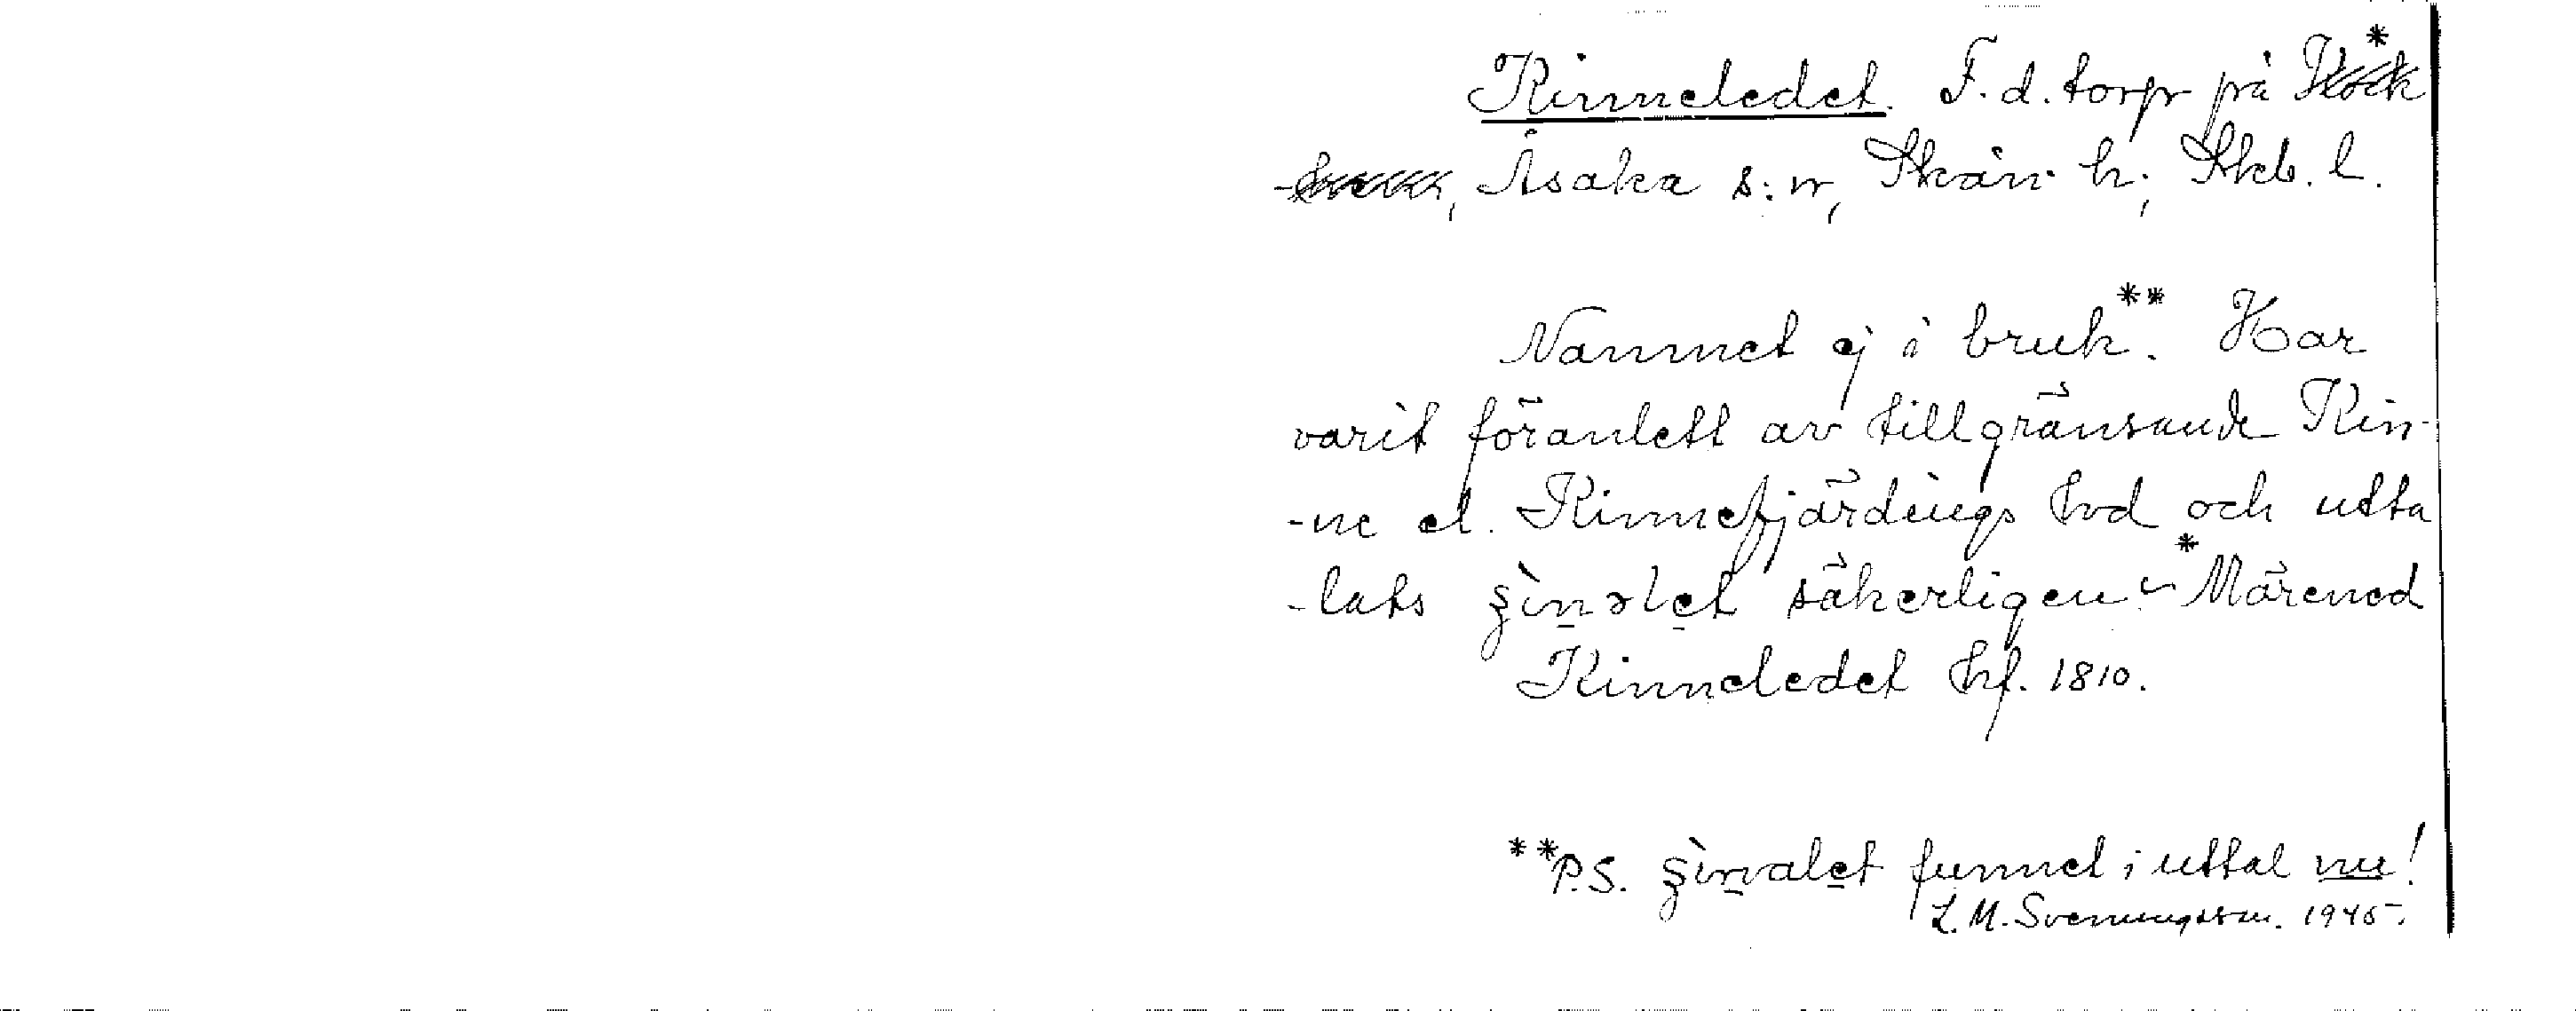 Kinneledet. F. d. torp på *
, Åsaka s:n, Skån. h., Skb. l.
Namnet ej i bruk**. Har
varit föranlett av tillgränsande Kin-
-ne el. Kinnefjärdings hd och utta
-lats ʂìnəlet säkerligen. *Märened
Kinneledet hf. 1810.
**P.S. ʂìnəlet funnet i uttal nu!
L. M. Svenungsson. 1945.